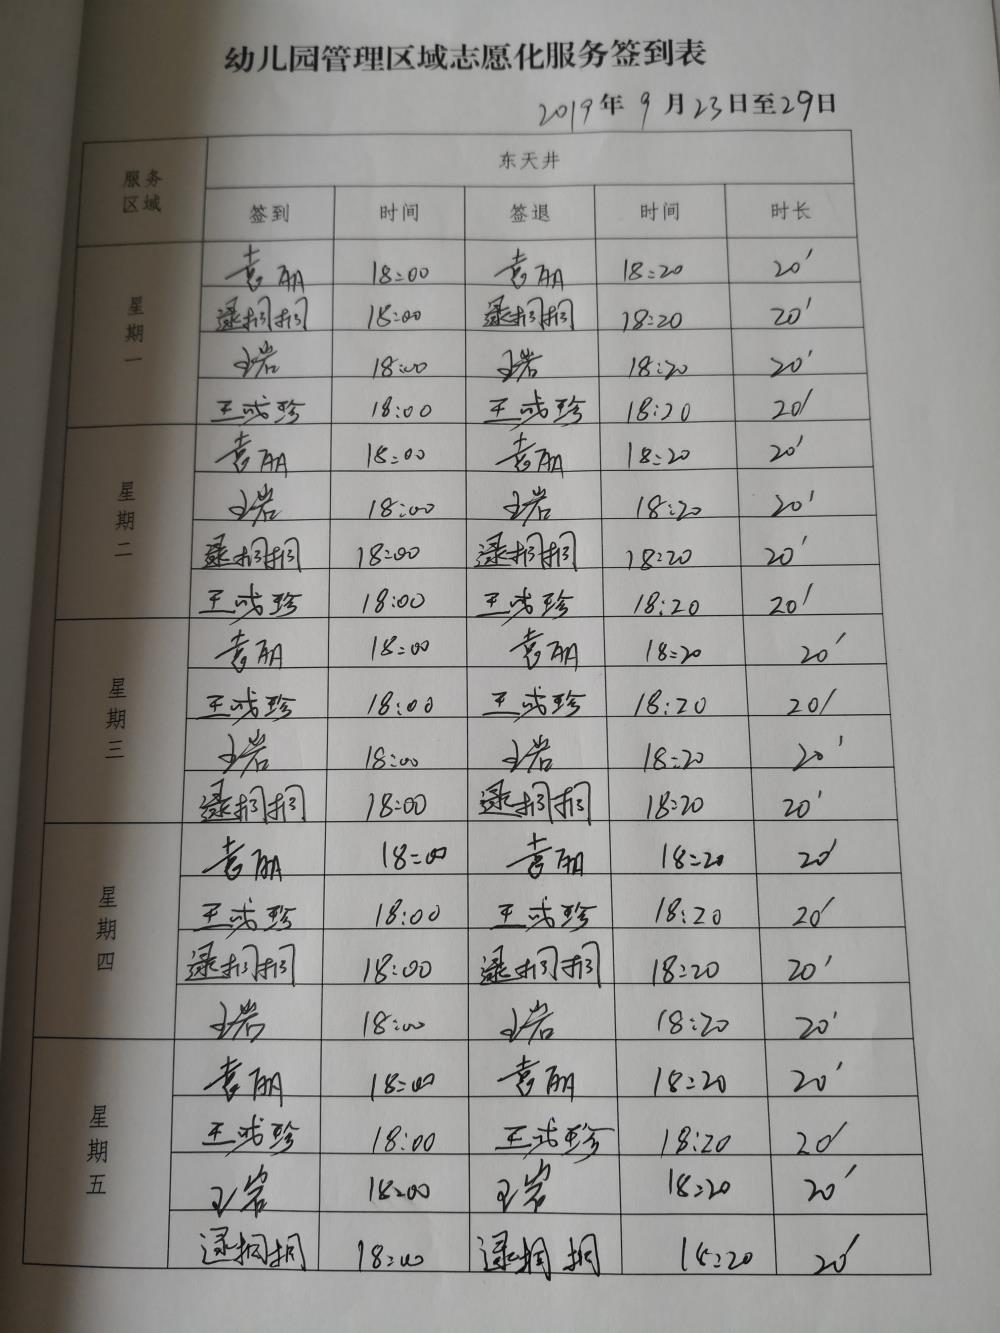 幼儿园管理区域志愿化服务签到表
2019年 9月23日至29日
服务区域 东天井
签到 时间 签退 时间 时长
星期一
袁丽 18:00 袁丽 18:20 20'
逯桐桐 18:00 逯桐桐 18:20 20'
王岩 18:00 王岩 18:20 20'
王彧珍 18:00 王彧珍 18:20 20'
星期二
袁丽 18:00 袁丽 18:20 20'
王岩 18:00 王岩 18:20 20'
逯桐桐 18:00 逯桐桐 18:20 20'
王彧珍 18:00 王彧珍 18:20 20'
星期三
袁丽 18:00 袁丽 18:20 20'
王彧珍 18:00 王彧珍 18:20 20'
王岩 18:00 王岩 18:20 20'
逯桐桐 18:00 逯桐桐 18:20 20'
星期四
袁丽 18:00 袁丽 18:20 20'
王彧珍 18:00 王彧珍 18:20 20'
逯桐桐 18:00 逯桐桐 18:20 20'
王岩 18:00 王岩 18:20 20'
星期五
袁丽 18:00 袁丽 18:20 20'
王彧珍 18:00 王彧珍 18:20 20'
王岩 18:00 王岩 18:20 20'
逯桐桐 18:00 逯桐桐 18:20 20'